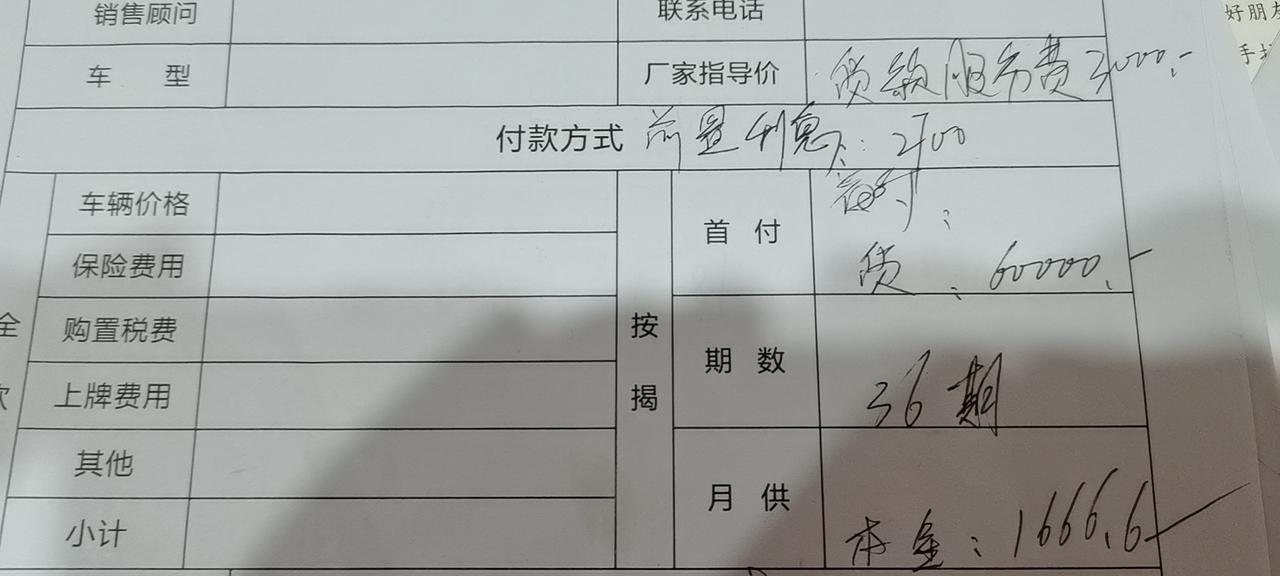 销售顾问 联系电话 好朋友
车 型 厂家指导价 贷款服务费3000.- 手
付款方式 前置利息: 2700
车辆价格
首 付 :
保险费用 贷: 60000.-
全
购置税费 按
期 数 36期
款 上牌费用 揭
其他
月 供
小计 本金: 1666.6